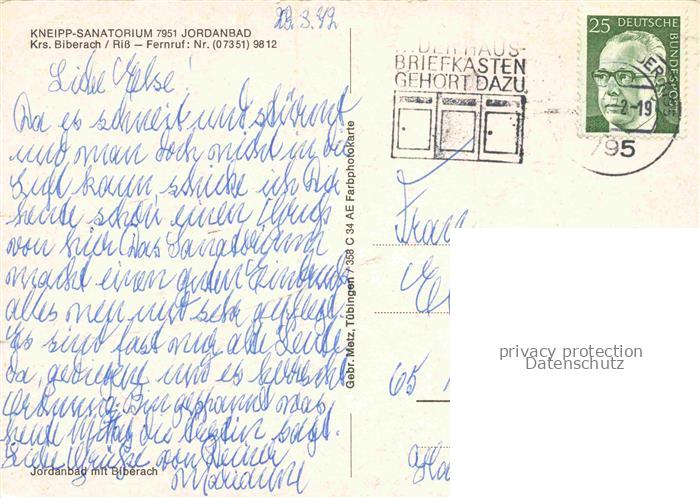 KNEIPP-SANATORIUM 7951 JORDANBAD
Krs. Biberach / Riß — Fernruf: Nr. (07351) 9812
Liebe Else!
Da es schneit und stürmt
und man doch nicht in die
Luft kann, schicke ich Dir
heute schon einen Gruß
von hier. Das Sanatorium
macht einen guten Eindruck
alles neu und sehr gepflegt.
Es sind fast nur alte Leute
da, und es herrscht
Ordnung. Bin gespannt was
heute Mittag die Ärztin sagt.
Liebe Grüße von Deiner
Marianne
Jordanbad mit Biberach
Gebr. Metz, Tübingen / 358 C 34 AE Farbphotokarte
HAUS-
BRIEFKASTEN
GEHÖRT DAZU
25 DEUTSCHE
BUNDESPOST
795
Frau
65
privacy protection
Datenschutz